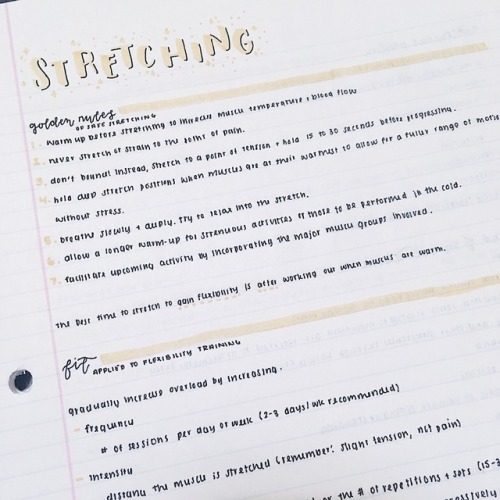 STRETCHING
golden rules
OF SAFE STRETCHING
1. warm up before stretching to increase muscle temperature + blood flow
2. never stretch or strain to the point of pain.
3. don't bounce! instead, stretch to a point of tension + hold 15 to 30 seconds before progressing.
4. hold deep stretch positions when muscles are at their warmest to allow for a fuller range of motion
without stress.
5. breathe slowly + deeply. try to relax into the stretch.
6. allow a longer warm-up for strenuous activities or those to be performed in the cold.
7. facilitate upcoming activity by incorporating the major muscle groups involved.
the best time to stretch to gain flexibility is after working out when muscles are warm.
fit APPLIED TO FLEXIBILITY TRAINING
gradually increase overload by increasing:
- frequency
# of sessions per day or week (2-3 days/wk recommended)
- intensity
distance the muscle is stretched (remember: slight tension, not pain)
or the # of repetitions + sets (15-3